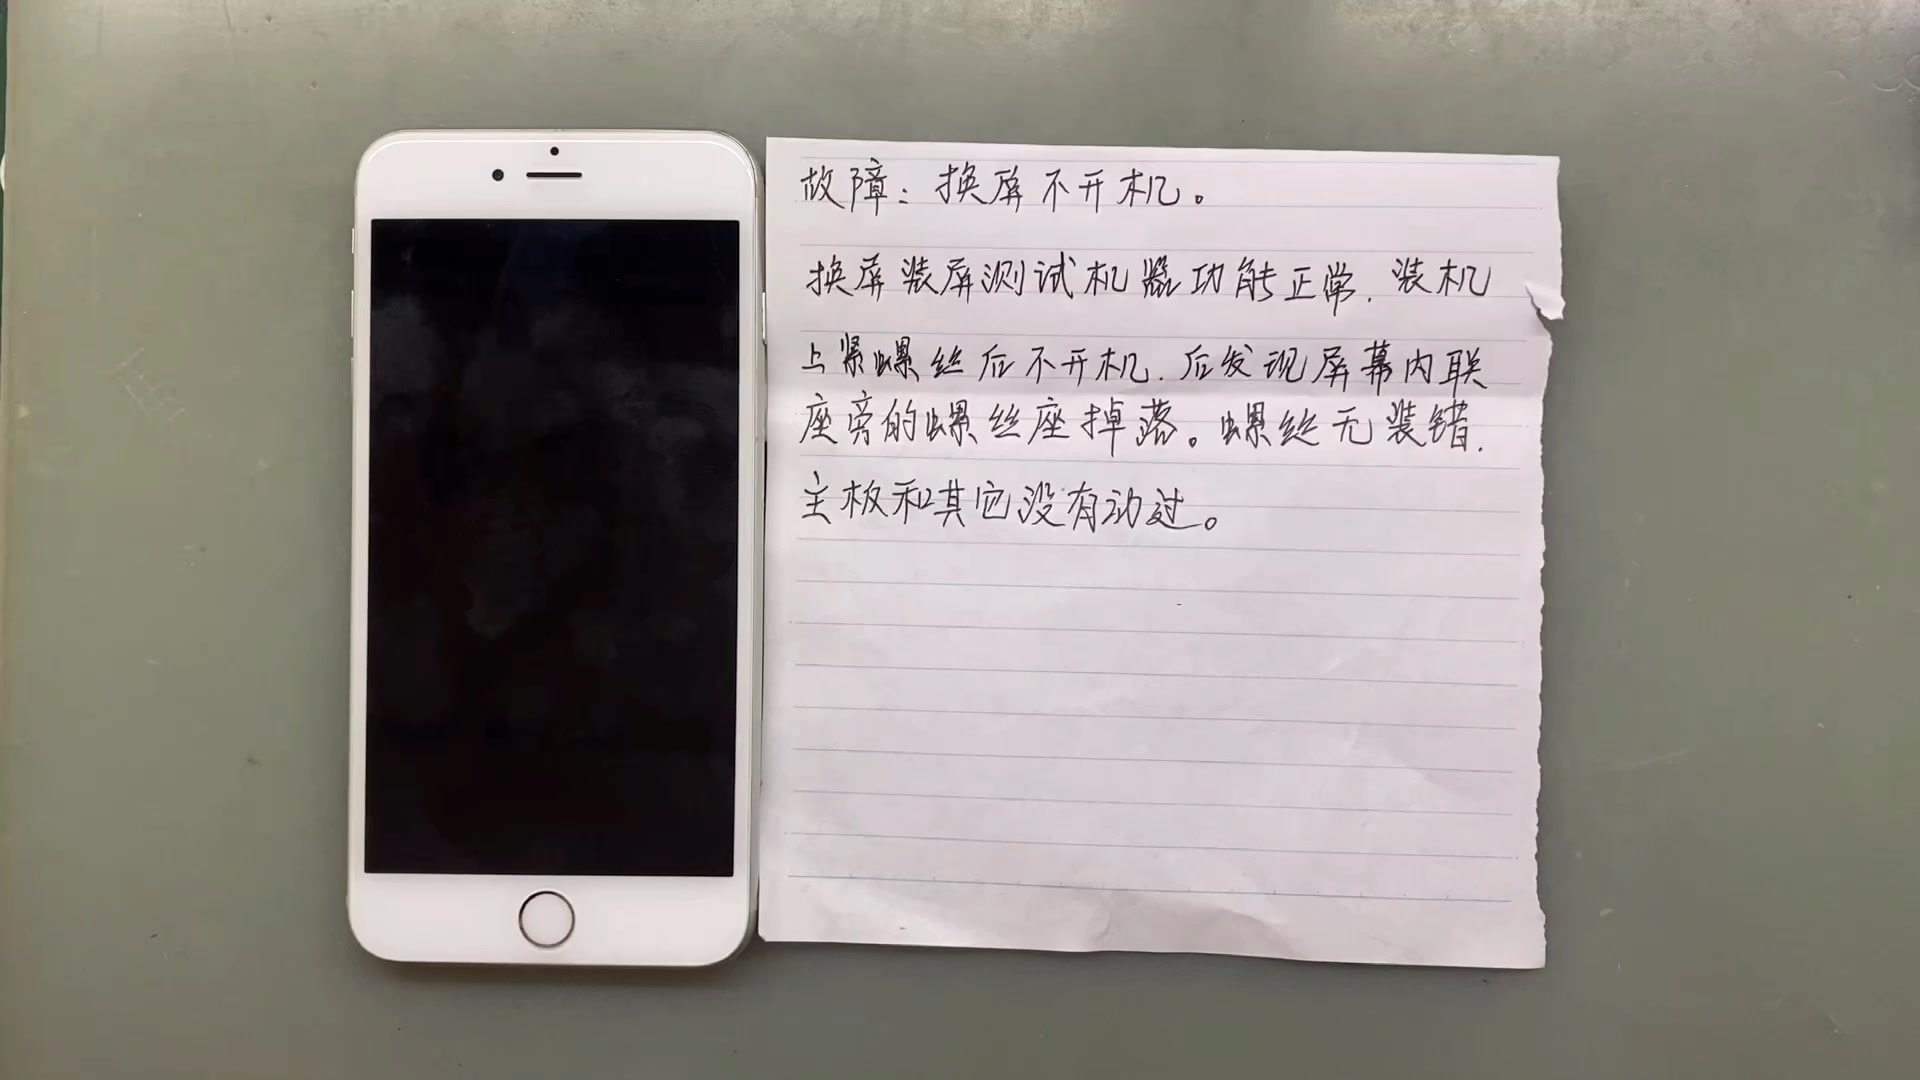 故障：换屏不开机。
换屏装屏测试机器功能正常．装机
上紧螺丝后不开机．后发现屏幕内联
座旁的螺丝座掉落。螺丝无装错．
主板和其它没有动过。